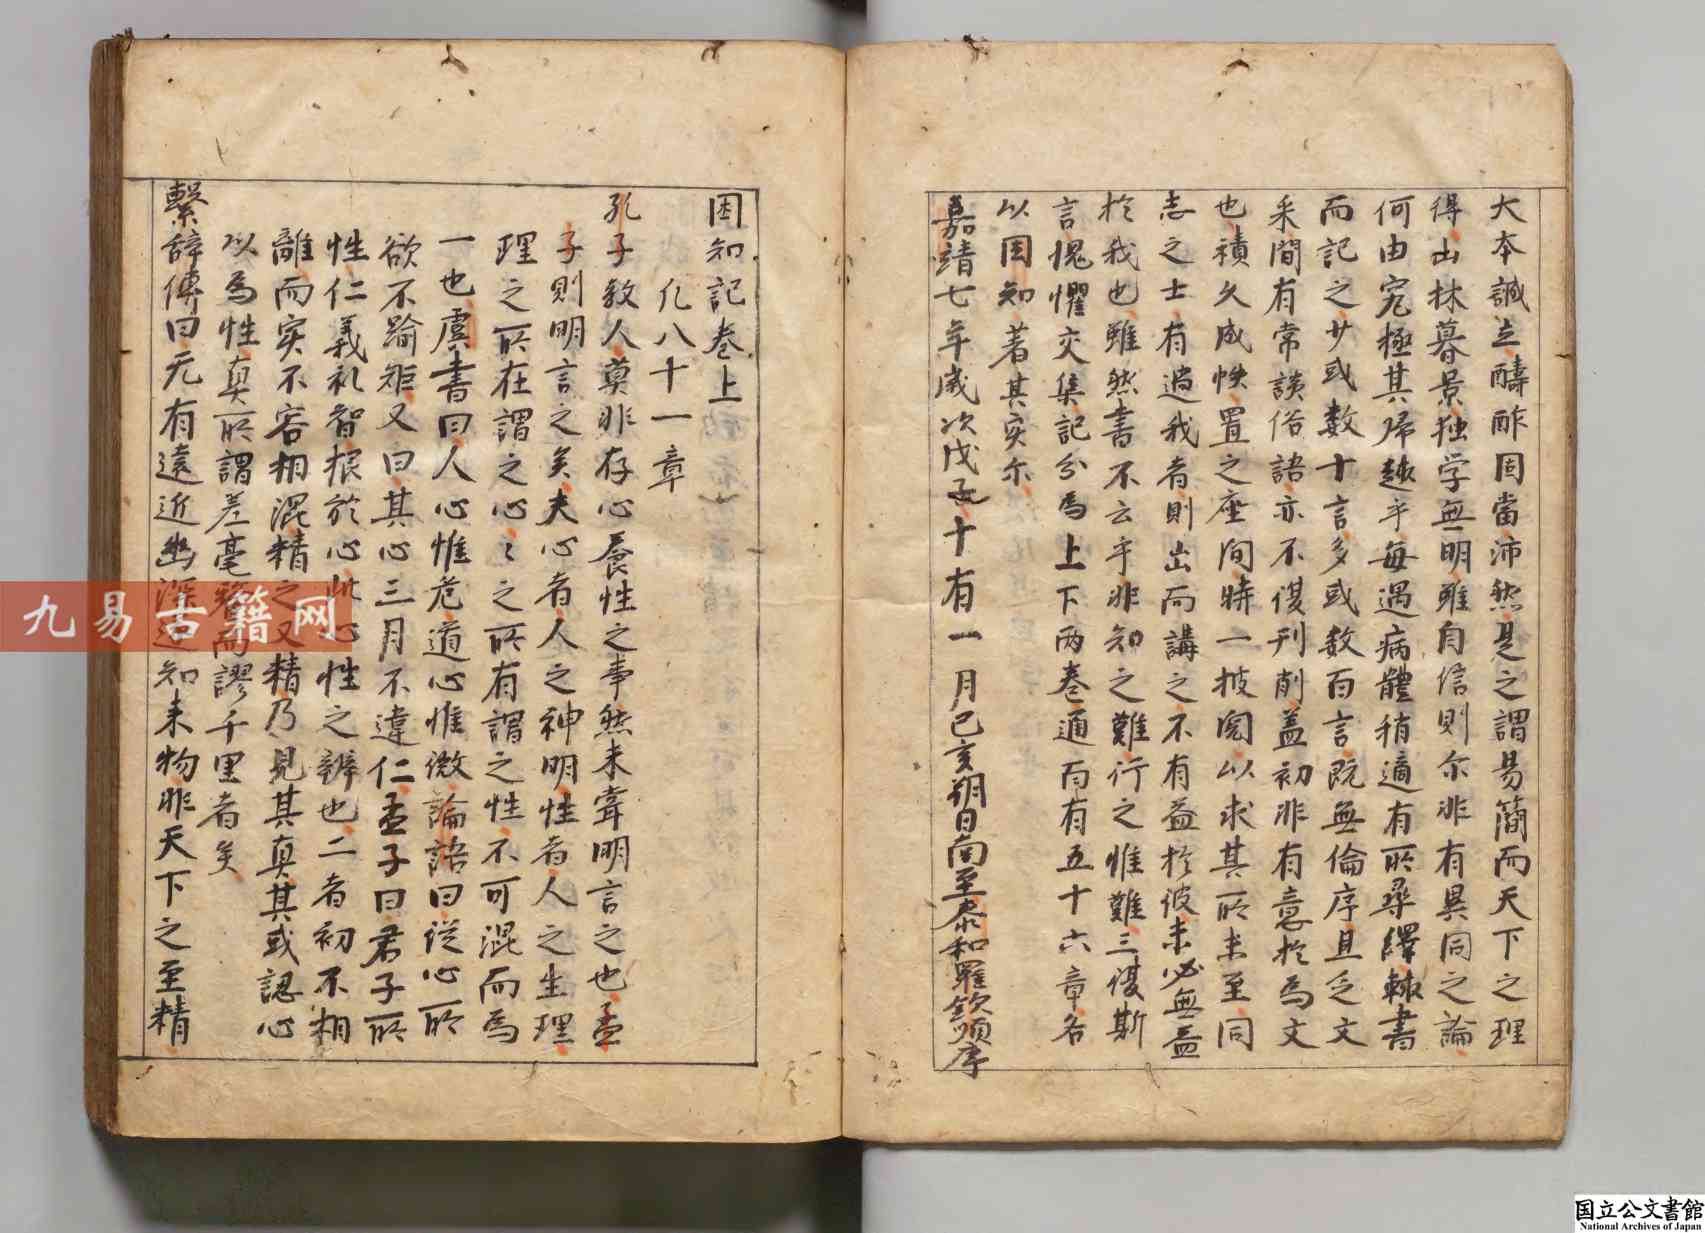 大本誠立酬酢固當沛然是之謂易簡而天下之理
得山林暮景独学無明雖自信則尔非有異同之論
何由究極其帰趣乎每遇病體稍適有所尋繹輙書
而記之少或数十言多或数百言既無倫序且乏文
采間有常談俗語亦不復刊削盖初非有意於為文
也積久成帙置之座间時一披閱以求其所未至同
志之士有過我者則出而講之不有益於彼未必無益
於我也雖然書不云乎非知之難行之惟難三復斯
言愧懼交集記分為上下两卷通百有五十六章名
以困知著其实尔
嘉靖七年歲次戊子十有一月已亥朔日南至泰和羅欽順序
困知記卷上
凢八十一章
孔子教人莫非存心養性之事然未甞明言之也孟
子則明言之矣夫心者人之神明性者人之生理
理之所在謂之心〻之所有謂之性不可混而為
一也虞書曰人心惟危道心惟微論語曰従心所
欲不踰矩又曰其心三月不違仁孟子曰君子所
性仁義礼智根於心此心性之辨也二者初不相
離而实不容相混精之又精乃見其真其或認心
以為性真所謂差毫釐而謬千里者矣
繫辞傳曰无有遠近幽深遂知来物非天下之至精
九易古籍网
国立公文書館
National Archives of Japan